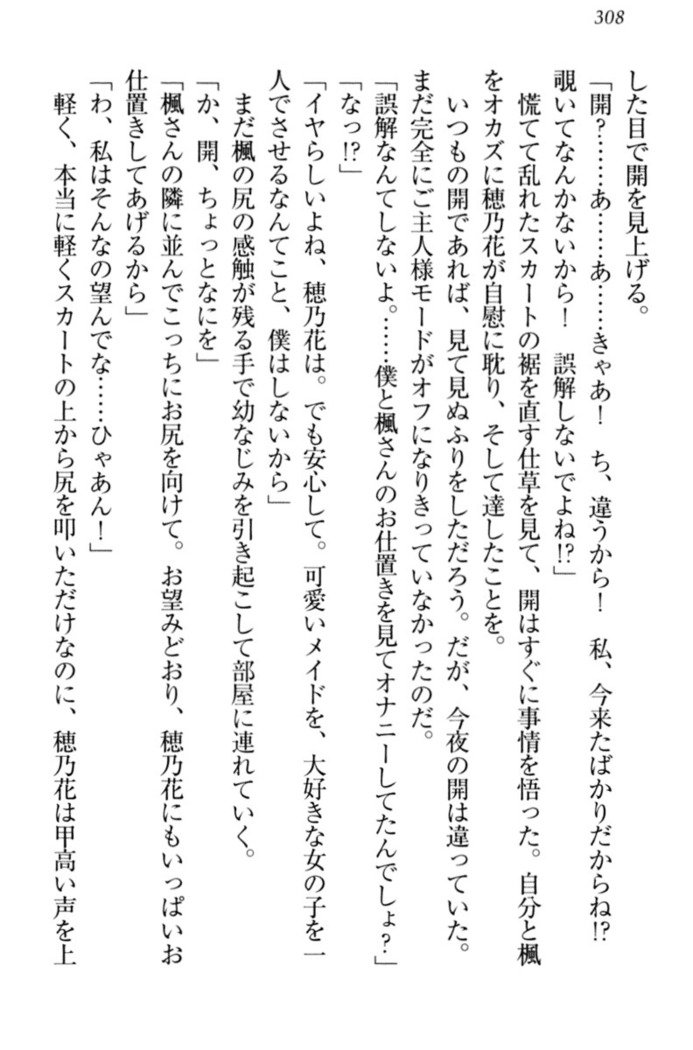 308
した目で開を見上げる。
「開？……あ……あ……きゃあ！　ち、違うから！　私、今来たばかりだからね!?
覗いてなんかないから！　誤解しないでよね!?」
慌てて乱れたスカートの裾を直す仕草を見て、開はすぐに事情を悟った。自分と楓
をオカズに穂乃花が自慰に耽り、そして達したことを。
いつもの開であれば、見て見ぬふりをしただろう。だが、今夜の開は違っていた。
まだ完全にご主人様モードがオフになりきっていなかったのだ。
「誤解なんてしないよ。……僕と楓さんのお仕置きを見てオナニーしてたんでしょ？」
「なっ!?」
「イヤらしいよね、穂乃花は。でも安心して。可愛いメイドを、大好きな女の子を一
人でさせるなんてこと、僕はしないから」
まだ楓の尻の感触が残る手で幼なじみを引き起こして部屋に連れていく。
「か、開、ちょっとなにを」
「楓さんの隣に並んでこっちにお尻を向けて。お望みどおり、穂乃花にもいっぱいお
仕置きしてあげるから」
「わ、私はそんなの望んでな……ひゃあん！」
軽く、本当に軽くスカートの上から尻を叩いただけなのに、穂乃花は甲高い声を上